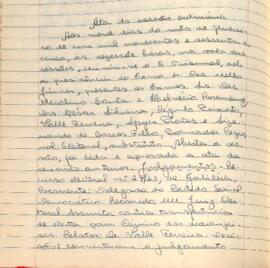 Ata da sessão ordinária
Aos nove dias do mês de fevereiro
de mil novecentos e sessenta e
cinco, às segunda horas, na sala das
sessões, reuniu-se o Tribunal, sob
a presidência do Exmo. Sr. Des. Mello
Júnior, presentes os Exmos. Srs. Des.
Merolino Corrêa e Helvécio Rosenburg,
Drs. César Silveira, Agnelo
Valle Ferreira, e
de Barros Filho, Procurador Regio-
nal Eleitoral, substituto. Aberta a ses-
são, foi lida e aprovada a ata da
reunião anterior. Julgamentos: Re-
curso eleitoral nº de Galiléia.
Recorrente: Delegado do Partido Social
Democrático. Recorrido: MM. Juiz Elei-
toral. Assunto: contra transferência
de eleitor para
Relator: Dr. Valle Ferreira. Deci-
são: converteram o julgamento